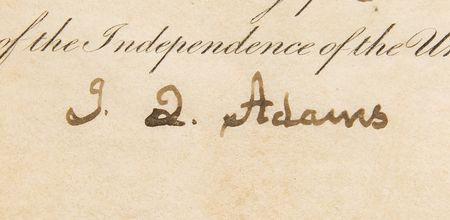 of the Independence of the Un
J. Q. Adams